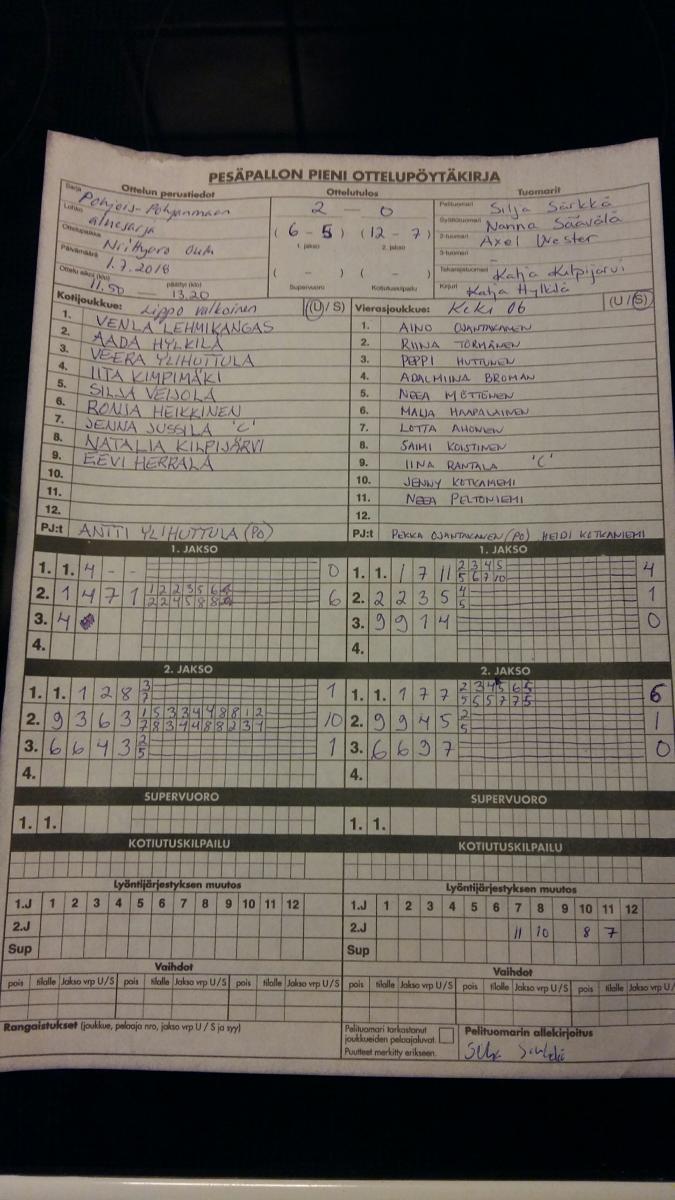 PESÄPALLON PIENI OTTELUPÖYTÄKIRJA
Ottelun perustiedot
Sarja Pohjois-Pohjanmaan
Lohko aluesarja
Ottelupaikka Oulu
Päivämäärä 1.7.2018
Ottelu alkoi (klo) 11.50 päättyi (klo) 13.20
Ottelutulos
2 - 0
( 6 - 5 ) ( 12 - 7 )
1. jakso 2. jakso
( - ) ( - )
Supervuoro Kotiutuskilpailu
Tuomarit
Pelituomari Silja Särkkä
Syöttötuomari Nanna Säävälä
2-tuomari Axel Wester
3-tuomari -
Takarajatuomari Katja Kilpijärvi
Kirjuri Katja Hylkilä
Kotijoukkue: Lippo valkoinen (U/S)
1. VENLA LEHMIKANGAS
2. AADA HYLKILÄ
3. VEERA YLIHUTTULA
4. IITA KIMPIMÄKI
5. SILJA VEIJOLA
6. RONJA HEIKKINEN
7. JENNA JUSSILA "C"
8. NATALIA KILPIJÄRVI
9. EEVI HERRALA
10.
11.
12.
PJ:t ANTTI YLIHUTTULA (PO)
Vierasjoukkue: KeKi 06 (U/S)
1. AINO OJANTAKANEN
2. RIINA TÖRMÄNEN
3. PEPPI HUTTUNEN
4. ADALMIINA BROMAN
5. NEEA MÖTTÖNEN
6. MALJA HAAPALAINEN
7. LOTTA AHONEN
8. SAIMI KOISTINEN
9. IINA RANTALA "C"
10. JENNY KOTKANIEMI
11. NEEA PELTONIEMI
12.
PJ:t PEKKA OJANTAKANEN (PO), HEIDI KOTKANIEMI
1. JAKSO
1. 1. 4 - - 0
2. 1 4 7 1 6
3. 4
4.
1. JAKSO
1. 1. 1 7 11 2 3 4 5 4
5 6 7 10
2. 2 2 3 5 4 1
5
3. 9 9 1 4 0
4.
2. JAKSO
1. 1. 1 2 8 3 1
7
2. 9 3 6 3 1 5 3 3 4 4 8 8 1 2 10
7 8 3 4 4 8 8 2 3 4
3. 6 6 4 3 2 1
5
4.
2. JAKSO
1. 1. 1 7 7 2 3 4 5 6 5 6
5 5 5 7 7 5
2. 9 9 4 5 2 1
5
3. 6 6 3 7 0
4.
SUPERVUORO
1. 1.
SUPERVUORO
1. 1.
KOTIUTUSKILPAILU
KOTIUTUSKILPAILU
Lyöntijärjestyksen muutos
1.J 1 2 3 4 5 6 7 8 9 10 11 12
2.J
Sup
Lyöntijärjestyksen muutos
1.J 1 2 3 4 5 6 7 8 9 10 11 12
2.J 11 10 8 7
Sup
Vaihdot
pois tilalle Jakso vrp U/S pois tilalle Jakso vrp U/S pois tilalle Jakso vrp U/S
Vaihdot
pois tilalle Jakso vrp U/S pois tilalle Jakso vrp U/S pois tilalle Jakso vrp U/
Rangaistukset (joukkue, pelaaja nro, jakso vrp U / S ja syy)
Pelituomari tarkastanut
joukkueiden pelaajaluvat.
Puutteet merkitty erikseen.
Pelituomarin allekirjoitus